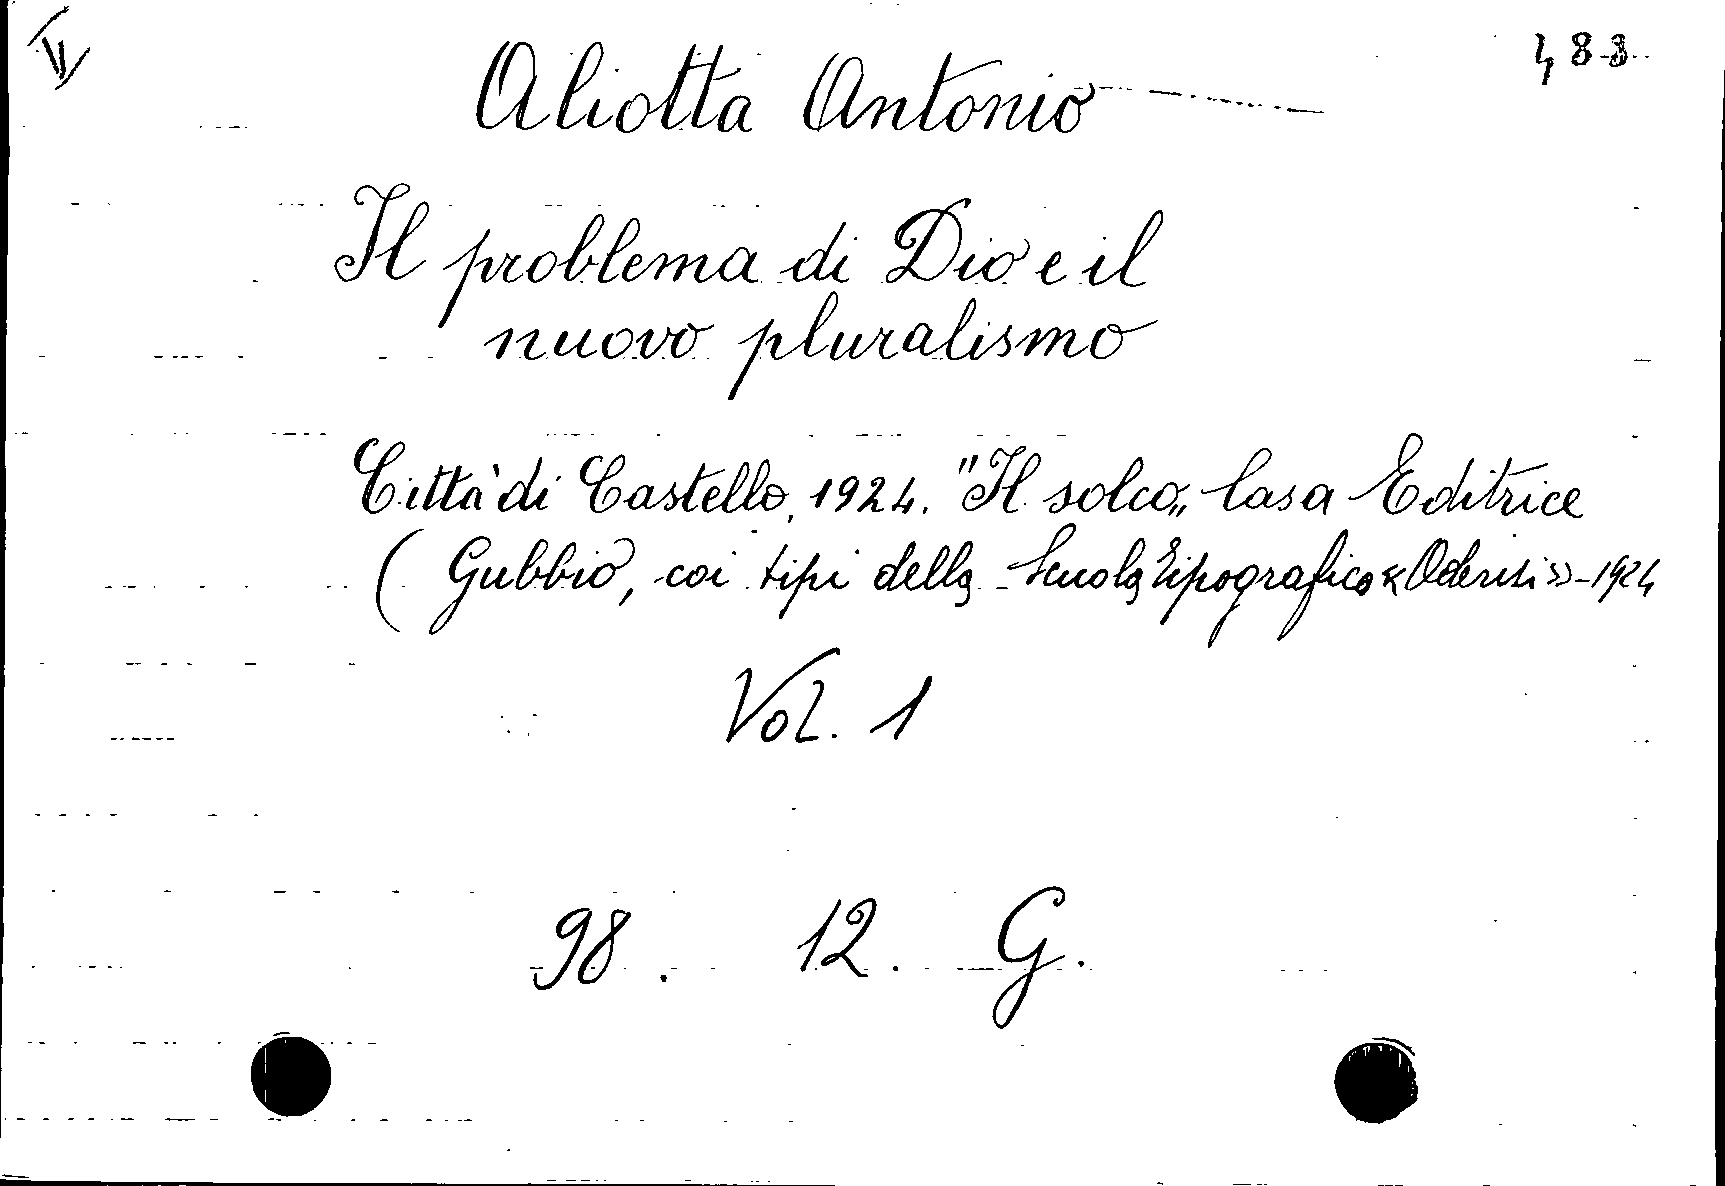 V
488
Aliotta Antonio
Il problema di Dio e il
nuovo pluralismo
Città di Castello, 1924. "Il solco„ Casa Editrice
( Gubbio, coi tipi della Scuola Tipografica «Oderisi» - 1924
Vol. 1
98. 12. G.